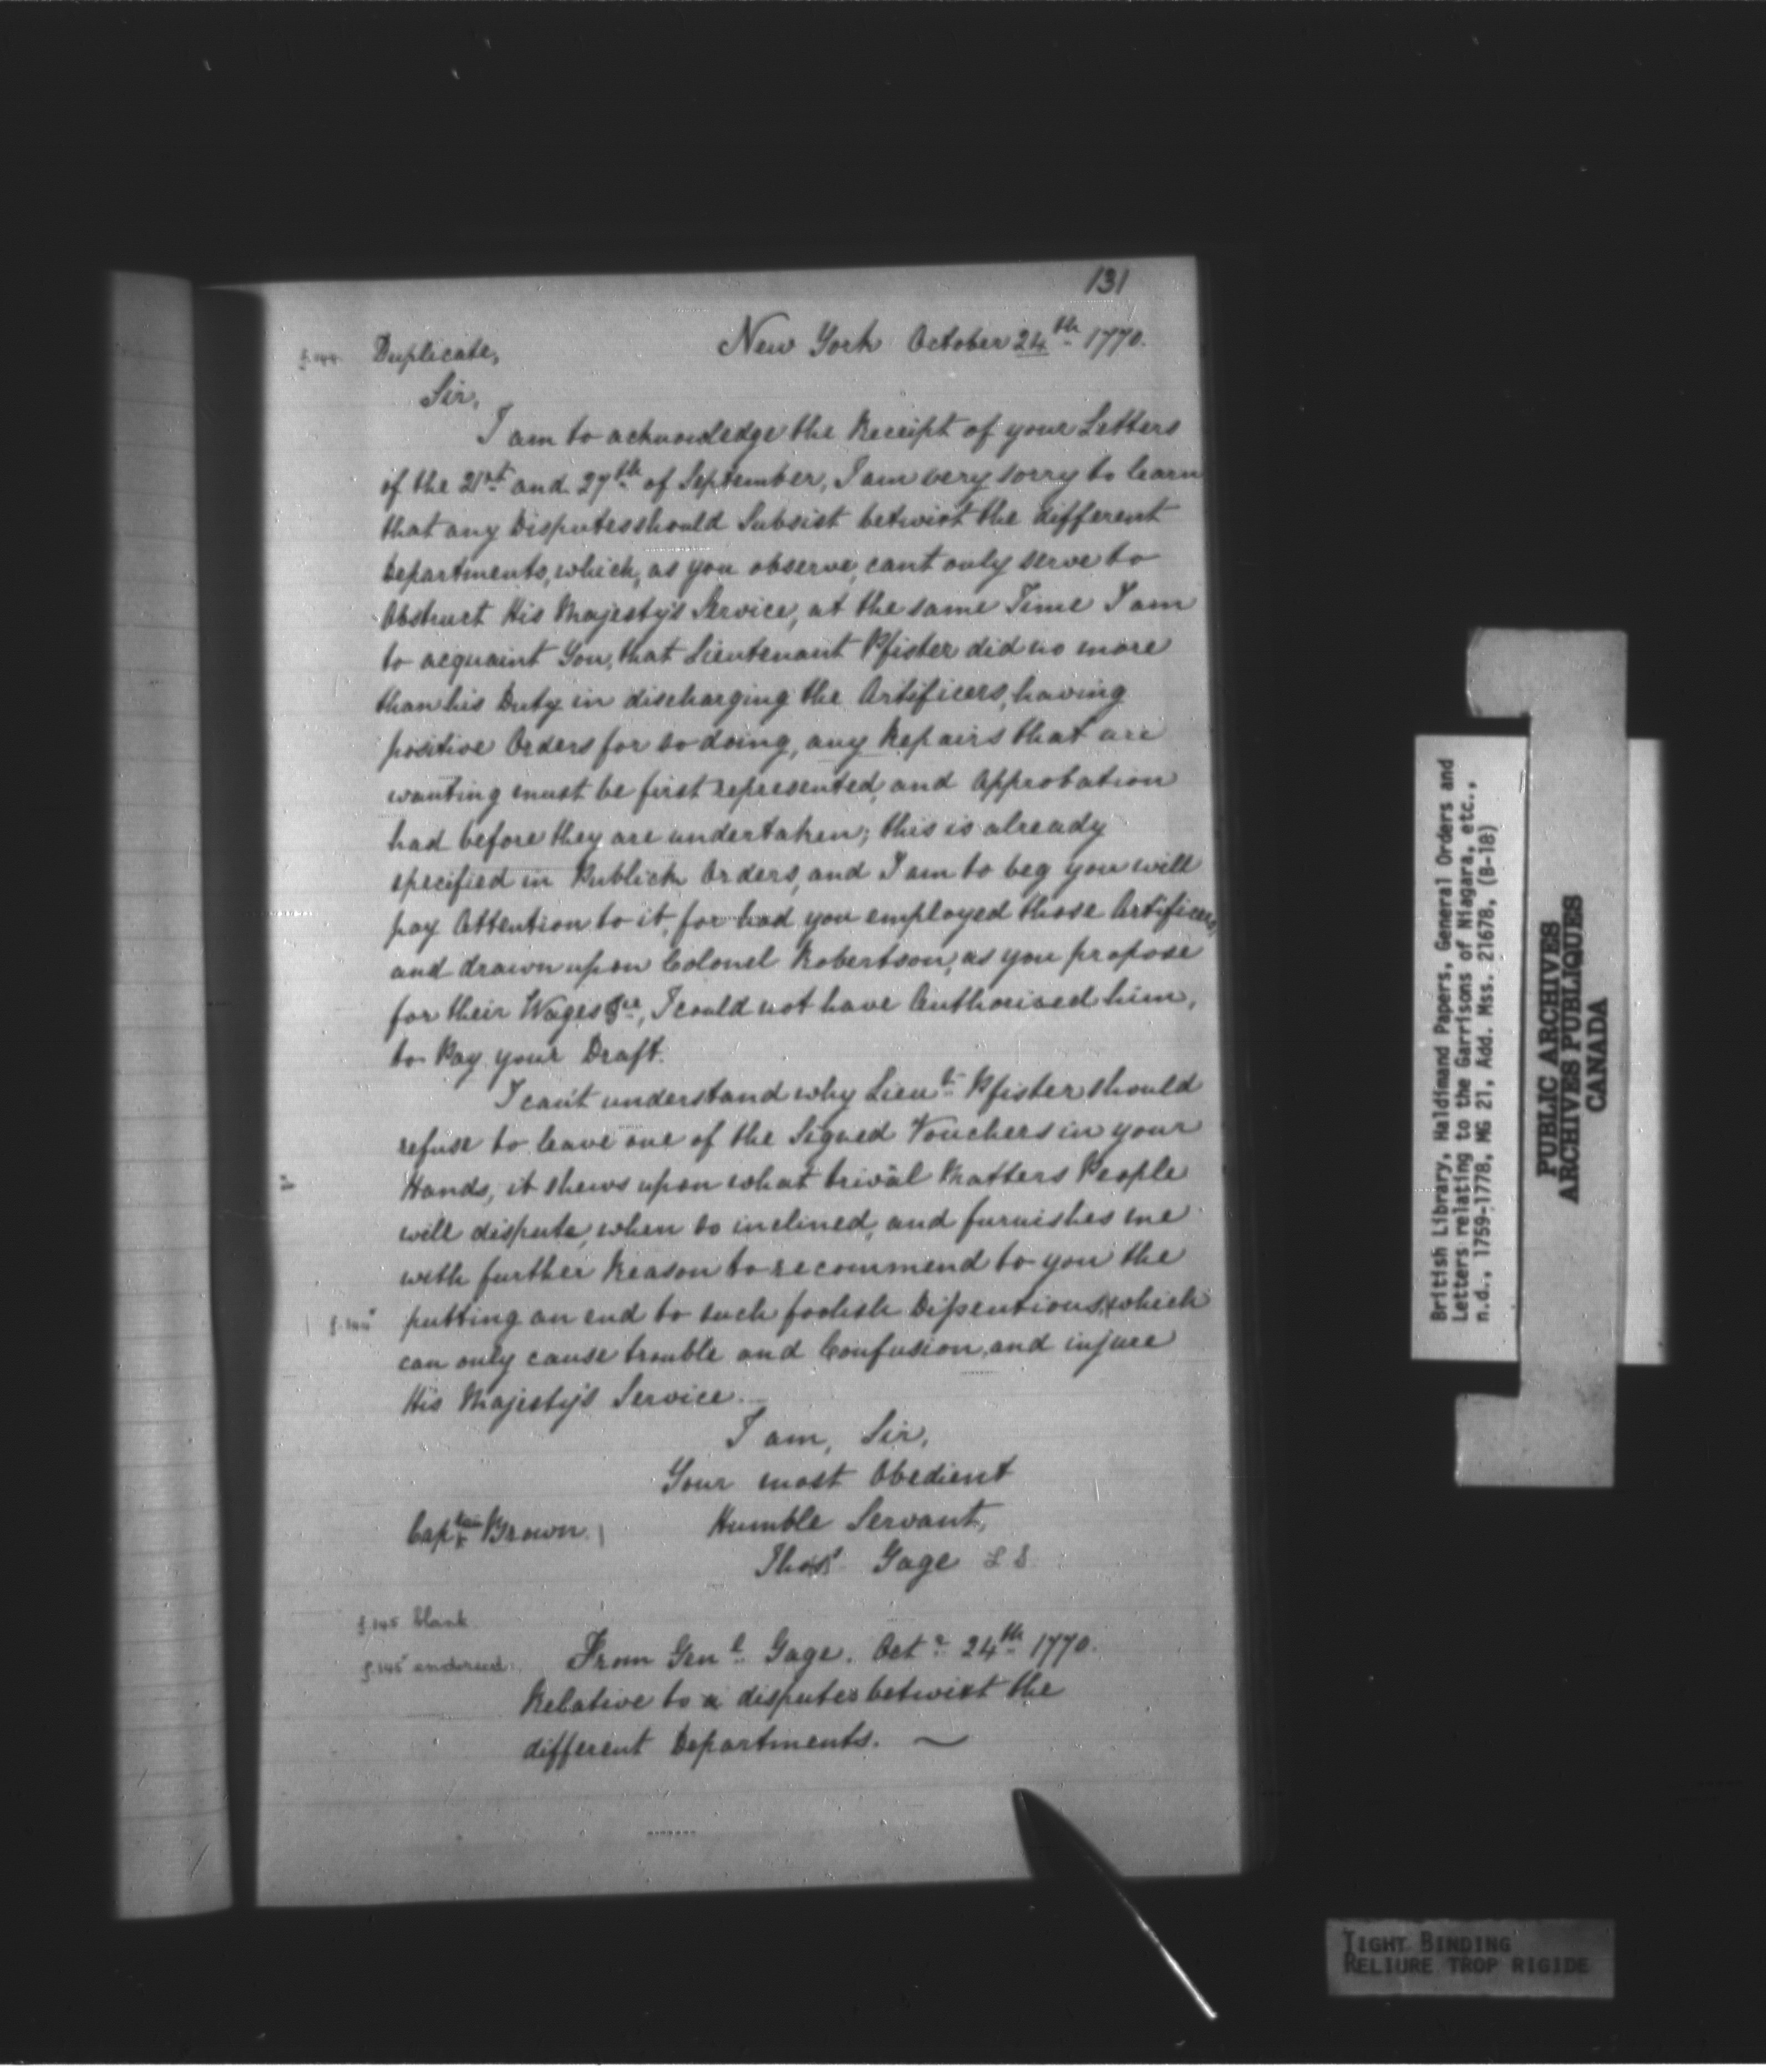 131
f.144. Duplicate, New York October 24th 1770.
Sir,
I am to acknowledge the Receipt of your Letters
of the 21st and 27th of September, I am very sorry to learn
that any Disputes should Subsist betwixt the different
Departments, which, as you observe, cant only serve to
Obstruct His Majesty's Service, at the same Time I am
to acquaint You, that Lieutenant Pfister did no more
than his Duty in discharging the Artificers, having
positive Orders for so doing, any Repairs that are
wanting must be first represented, and Approbation
had before they are undertaken; this is already
specified in Publick Orders, and I am to beg you will
pay Attention to it, for had you employed those Artificers,
and drawn upon Colonel Robertson, as you propose
for their Wages &ca, I could not have Authorised him,
to Pay your Draft.
I can't understand why Lieut Pfister should
refuse to leave one of the Signed Vouchers in your
Hands, it shews upon what trival Matters People
will dispute, when so inclined, and furnishes me
with further Reason to recommend to you the
putting an end to such foolish Dissentions, which
can only cause trouble and Confusion, and injure
His Majesty's Service.
I am, Sir,
Your most Obedient
Captain Brown. Humble Servant,
Thos Gage L S
f.145 blank
f.145v endorsed: From Genl Gage. Octr 24th 1770.
Relative to a disputes betwixt the
different Departments. —
British Library, Haldimand Papers, General Orders and
Letters relating to the Garrisons of Niagara, etc.,
n.d., 1759-1778, MG 21, Add. Mss. 21678, (B-18)
PUBLIC ARCHIVES
ARCHIVES PUBLIQUES
CANADA
TIGHT BINDING
RELIURE TROP RIGIDE